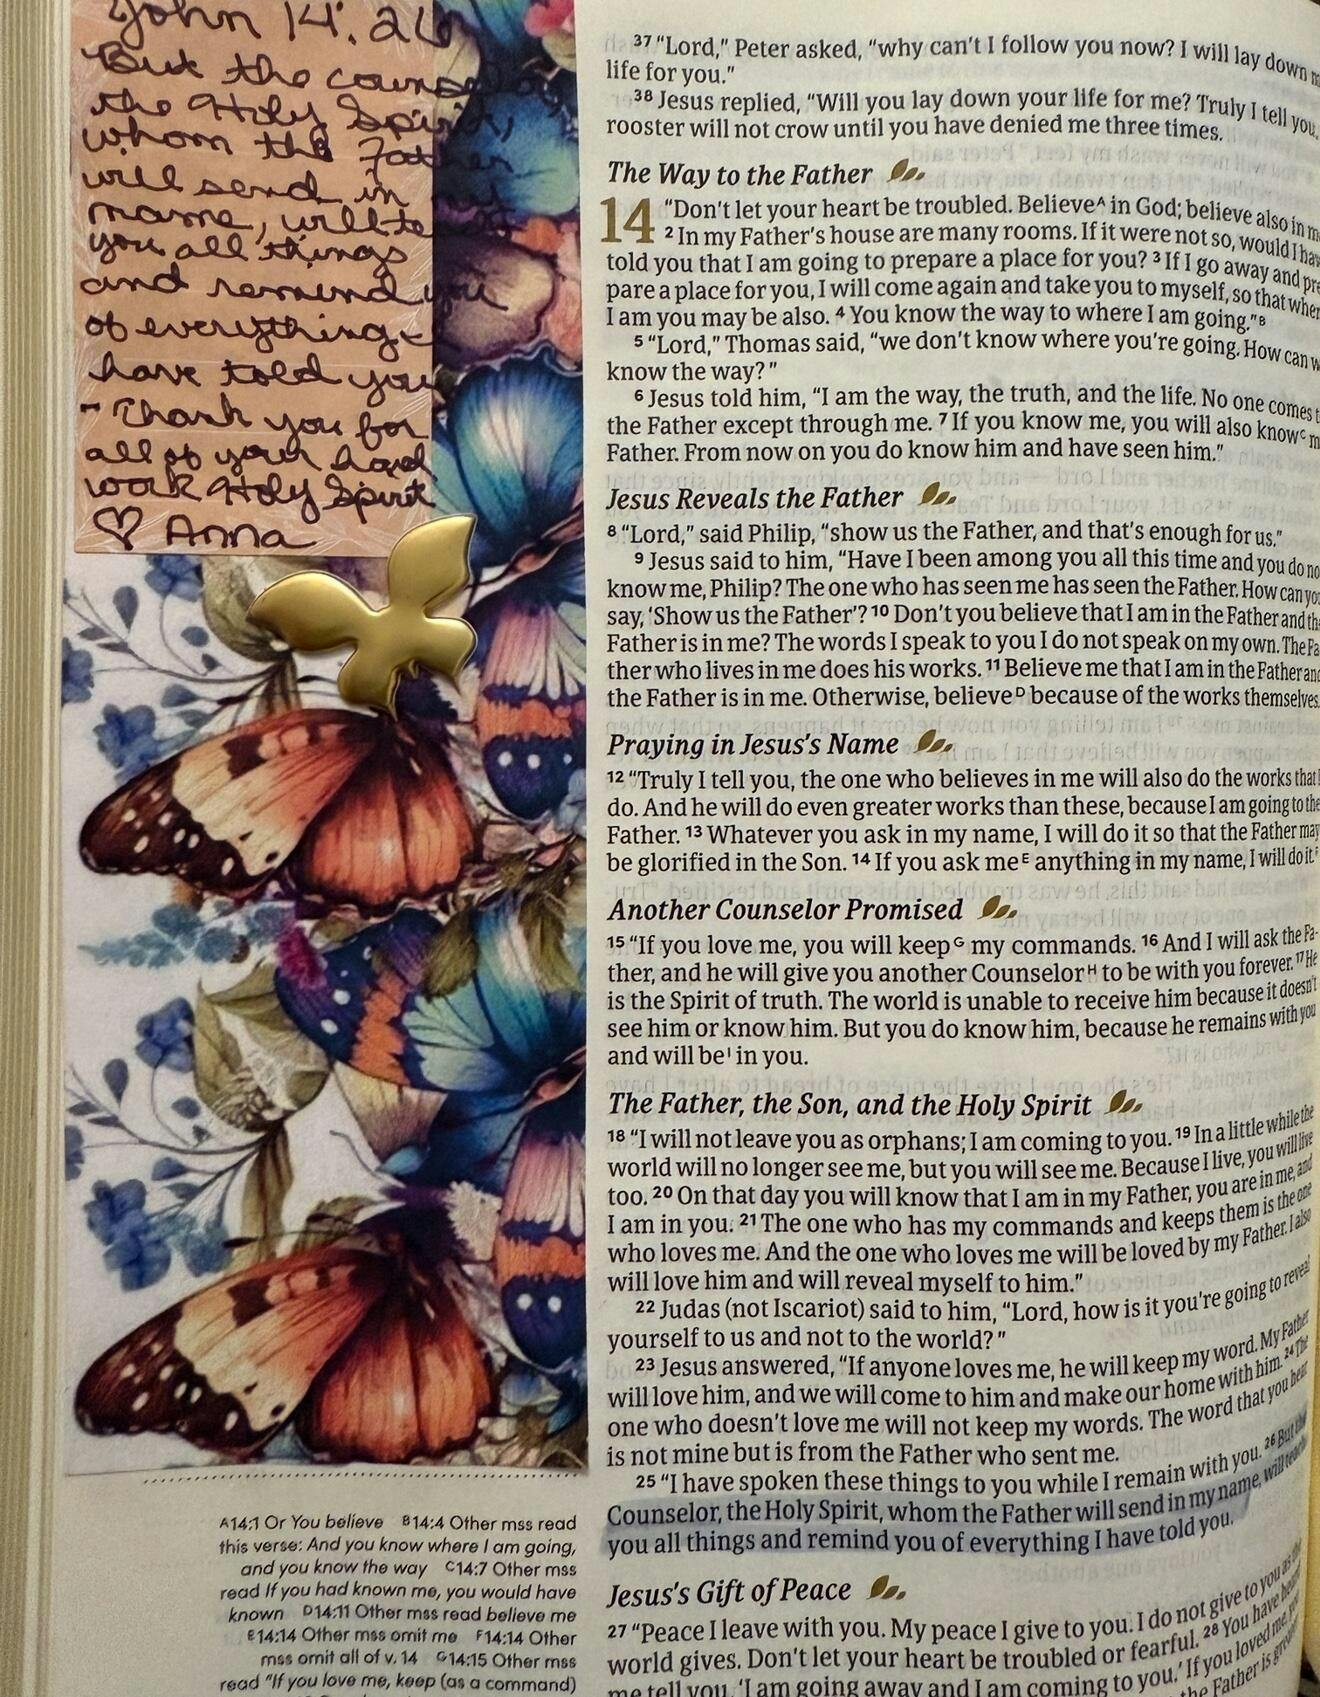 John 14:26
But the counselor,
the Holy Spirit,
whom the Father
will send in
name, will te
you all things
and remind you
of everything I
have told you
- Thank you for
all of your hard
work Holy Spirit
♡ Anna
37 “Lord,” Peter asked, “why can’t I follow you now? I will lay down
life for you.”
38 Jesus replied, “Will you lay down your life for me? Truly I tell you,
rooster will not crow until you have denied me three times.
The Way to the Father
14 “Don’t let your heart be troubled. Believeᴬ in God; believe also in
2 In my Father’s house are many rooms. If it were not so, would I hav
told you that I am going to prepare a place for you? 3 If I go away and pre
pare a place for you, I will come again and take you to myself, so that wher
I am you may be also. 4 You know the way to where I am going.”ᴮ
5 “Lord,” Thomas said, “we don’t know where you’re going. How can w
know the way?”
6 Jesus told him, “I am the way, the truth, and the life. No one comes t
the Father except through me. 7 If you know me, you will also knowᶜ m
Father. From now on you do know him and have seen him.”
Jesus Reveals the Father
8 “Lord,” said Philip, “show us the Father, and that’s enough for us.”
9 Jesus said to him, “Have I been among you all this time and you do no
know me, Philip? The one who has seen me has seen the Father. How can you
say, ‘Show us the Father’? 10 Don’t you believe that I am in the Father and the
Father is in me? The words I speak to you I do not speak on my own. The Fa
ther who lives in me does his works. 11 Believe me that I am in the Father and
the Father is in me. Otherwise, believeᴰ because of the works themselves.
Praying in Jesus’s Name
12 “Truly I tell you, the one who believes in me will also do the works that I
do. And he will do even greater works than these, because I am going to the
Father. 13 Whatever you ask in my name, I will do it so that the Father may
be glorified in the Son. 14 If you ask meᴱ anything in my name, I will do it.ᶠ
Another Counselor Promised
15 “If you love me, you will keepᴳ my commands. 16 And I will ask the Fa-
ther, and he will give you another Counselorᴴ to be with you forever. 17 He
is the Spirit of truth. The world is unable to receive him because it doesn’t
see him or know him. But you do know him, because he remains with you
and will beᴵ in you.
The Father, the Son, and the Holy Spirit
18 “I will not leave you as orphans; I am coming to you. 19 In a little while the
world will no longer see me, but you will see me. Because I live, you will live
too. 20 On that day you will know that I am in my Father, you are in me, and
I am in you. 21 The one who has my commands and keeps them is the one
who loves me. And the one who loves me will be loved by my Father. I also
will love him and will reveal myself to him.”
22 Judas (not Iscariot) said to him, “Lord, how is it you’re going to reveal
yourself to us and not to the world?”
23 Jesus answered, “If anyone loves me, he will keep my word. My Father
will love him, and we will come to him and make our home with him. 24 The
one who doesn’t love me will not keep my words. The word that you hear
is not mine but is from the Father who sent me.
25 “I have spoken these things to you while I remain with you. 26 But the
Counselor, the Holy Spirit, whom the Father will send in my name, will teach
you all things and remind you of everything I have told you.
Jesus’s Gift of Peace
27 “Peace I leave with you. My peace I give to you. I do not give to you as the
world gives. Don’t let your heart be troubled or fearful. 28 You have heard
me tell you, ‘I am going away and I am coming to you.’ If you loved me, you
the Father is greater
ᴬ14:1 Or You believe ᴮ14:4 Other mss read
this verse: And you know where I am going,
and you know the way ᶜ14:7 Other mss
read If you had known me, you would have
known ᴰ14:11 Other mss read believe me
ᴱ14:14 Other mss omit me ᶠ14:14 Other
mss omit all of v. 14 ᴳ14:15 Other mss
read “If you love me, keep (as a command)